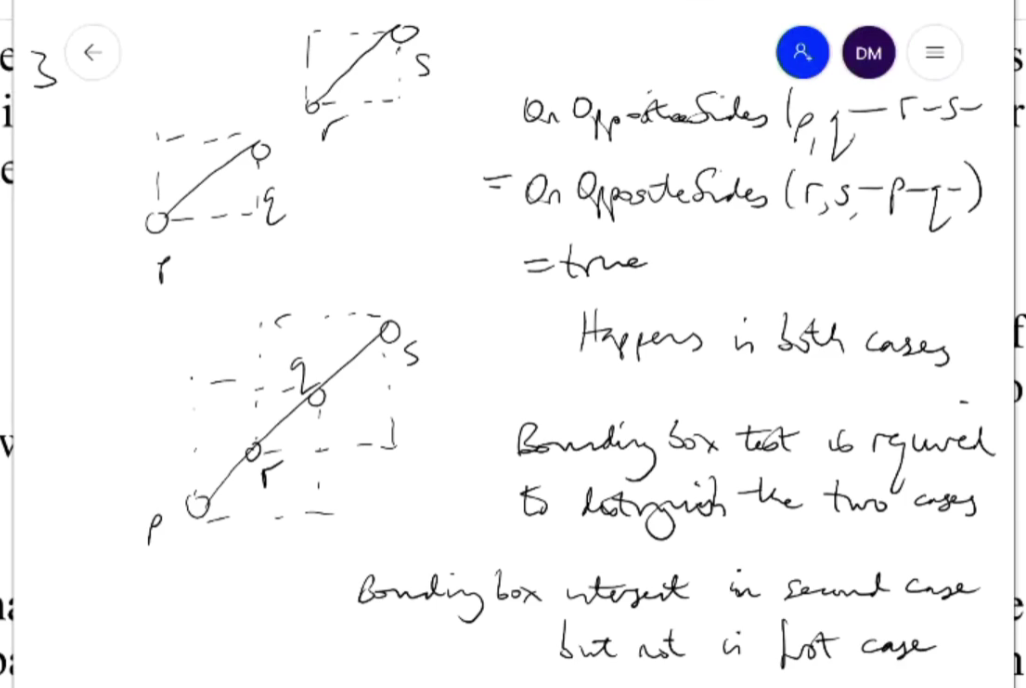 3
s
r
q
p
On OppositeSides (p,q-r-s-
= On OppositeSides (r,s,-p-q-)
= true
Happens in both cases
s
q
r
p
Bounding box test is required
to distinguish the two cases
Bounding box intersect in second case
but not in first case
DM